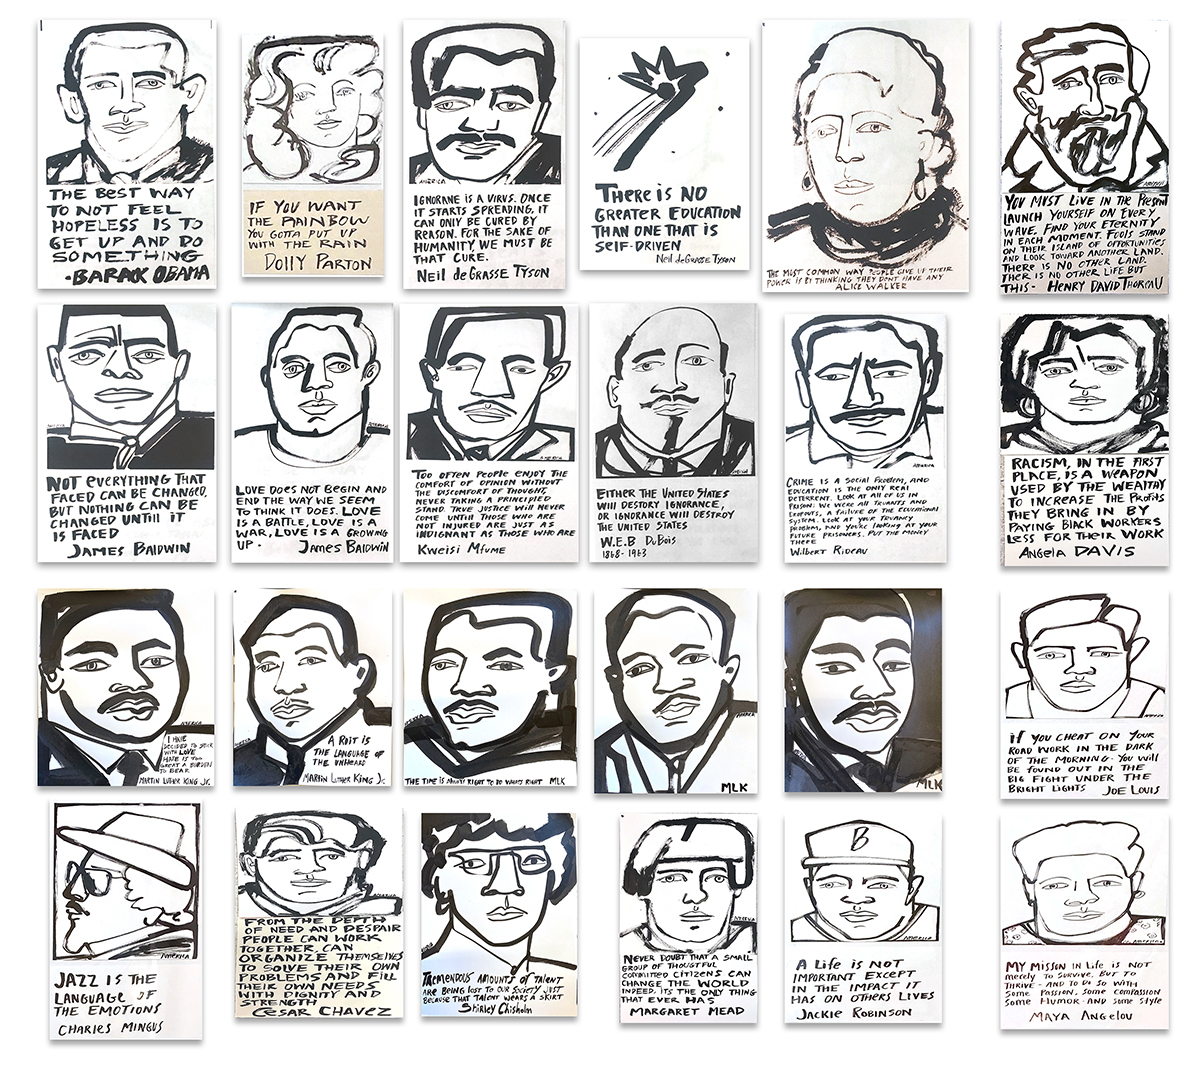 THE BEST WAY
TO NOT FEEL
HOPELESS IS TO
GET UP AND DO
SOMETHING
-BARACK OBAMA
IF YOU WANT
THE RAINBOW
YOU GOTTA PUT UP
WITH THE RAIN
DOLLY PARTON
AMERICA
IGNORANE IS A VIRUS. ONCE
IT STARTS SPREADING, IT
CAN ONLY BE CURED BY
REASON. FOR THE SAKE OF
HUMANITY, WE MUST BE
THAT CURE.
NEIL DEGRASSE TYSON
THERE IS NO
GREATER EDUCATION
THAN ONE THAT IS
SELF-DRIVEN
NEIL deGRASSE TYSON
THE MOST COMMON WAY PEOPLE GIVE UP THEIR
POWER IS BY THINKING THEY DONT HAVE ANY
ALICE WALKER
AMERICA
YOU MUST LIVE IN THE PRESENT
LAUNCH YOURSELF ON EVERY
WAVE. FIND YOUR ETERNITY
IN EACH MOMENT. FOOLS STAND
ON THEIR ISLAND OF OPPORTUNITIES
AND LOOK TOWARD ANOTHER LAND.
THERE IS NO OTHER LAND.
THER IS NO OTHER LIFE BUT
THIS - HENRY DAVID THOREAU
NOT EVERYTHING THAT
FACED CAN BE CHANGED,
BUT NOTHING CAN BE
CHANGED UNTILL IT
IS FACED
JAMES BALDWIN
AMERICA
LOVE DOES NOT BEGIN AND
END THE WAY WE SEEM
TO THINK IT DOES. LOVE
IS A BATTLE, LOVE IS A
WAR, LOVE IS A GROWING
UP.
JAMES BALDWIN
AMERICA
TOO OFTEN PEOPLE ENJOY THE
COMFORT OF OPINION WITHOUT
THE DISCOMFORT OF THOUGHT,
NEVER TAKING A PRINCIPLED
STAND. TRUE JUSTICE WILL NEVER
COME UNTIL THOSE WHO ARE
NOT INJURED ARE JUST AS
INDIGNANT AS THOSE WHO ARE
KWEISI MFUME
EITHER THE UNITED STATES
WILL DESTORY IGNORANCE,
OR IGNORANCE WILL DESTROY
THE UNITED STATES
W.E.B DUBOIS
1868-1963
AMERICA
CRIME IS A SOCIAL PROBLEM, AND
EDUCATION IS THE ONLY REAL
DETERRENT. LOOK AT ALL OF US IN
PRISON: WE WERE ALL TRUANTS AND
DROPOUTS, A FAILURE OF THE EDUCATIONAL
SYSTEM. LOOK AT YOUR TRUANCY
PROBLEM, AND YOU'RE LOOKING AT YOUR
FUTURE PRISONERS. PUT THE MONEY
THERE
WILBERT RIDEAU
RACISM, IN THE FIRST
PLACE, IS A WEAPON
USED BY THE WEALTHY
TO INCREASE THE PROFITS
THEY BRING IN BY
PAYING BLACK WORKERS
LESS FOR THEIR WORK
ANGELA DAVIS
AMERICA
I HAVE
DECIDED TO STICK
WITH LOVE
HATE IS TOO
GREAT A BURDEN
TO BEAR
MARTIN LUTHER KING JR.
A RIOT IS
THE LANGUAGE OF
THE UNHEARD
MARTIN LUTHER KING Jr.
THE TIME IS ALWAYS RIGHT TO DO WHATS RIGHT MLK
AMERICA
MLK
MLK
AMERICA
IF YOU CHEAT ON YOUR
ROAD WORK IN THE DARK
OF THE MORNING. YOU WILL
BE FOUND OUT IN THE
BIG FIGHT UNDER THE
BRIGHT LIGHTS JOE LOUIS
AMERICA
JAZZ IS THE
LANGUAGE OF
THE EMOTIONS
CHARLES MINGUS
AMERICA
FROM THE DEPTH
OF NEED AND DESPAIR
PEOPLE CAN WORK
TOGETHER, CAN
ORGANIZE THEMSELVES
TO SOLVE THEIR OWN
PROBLEMS AND FILL
THEIR OWN NEEDS
WITH DIGNITY AND
STRENGTH
CESAR CHAVEZ
TREMENDOUS AMOUNTS OF TALENT
ARE BEING LOST TO OUR SOCIETY JUST
BECAUSE THAT TALENT WEARS A SKIRT
SHIRLEY CHISHOLM
AMERICA
NEVER DOUBT THAT A SMALL
GROUP OF THOUGTFUL
COMMITTED CITIZENS CAN
CHANGE THE WORLD
INDEED, IT'S THE ONLY THING
THAT EVER HAS
MARGARET MEAD
B
AMERICA
A LIFE IS NOT
IMPORTANT EXCEPT
IN THE IMPACT IT
HAS ON OTHERS LIVES
JACKIE ROBINSON
AMERICA
MY MISSON IN LIFE IS NOT
merely TO SURVIVE, BUT TO
THRIVE - AND TO DO SO WITH
SOME PASSION, SOME COMPASSION
SOME HUMOR - AND SOME STYLE
MAYA ANGELOU